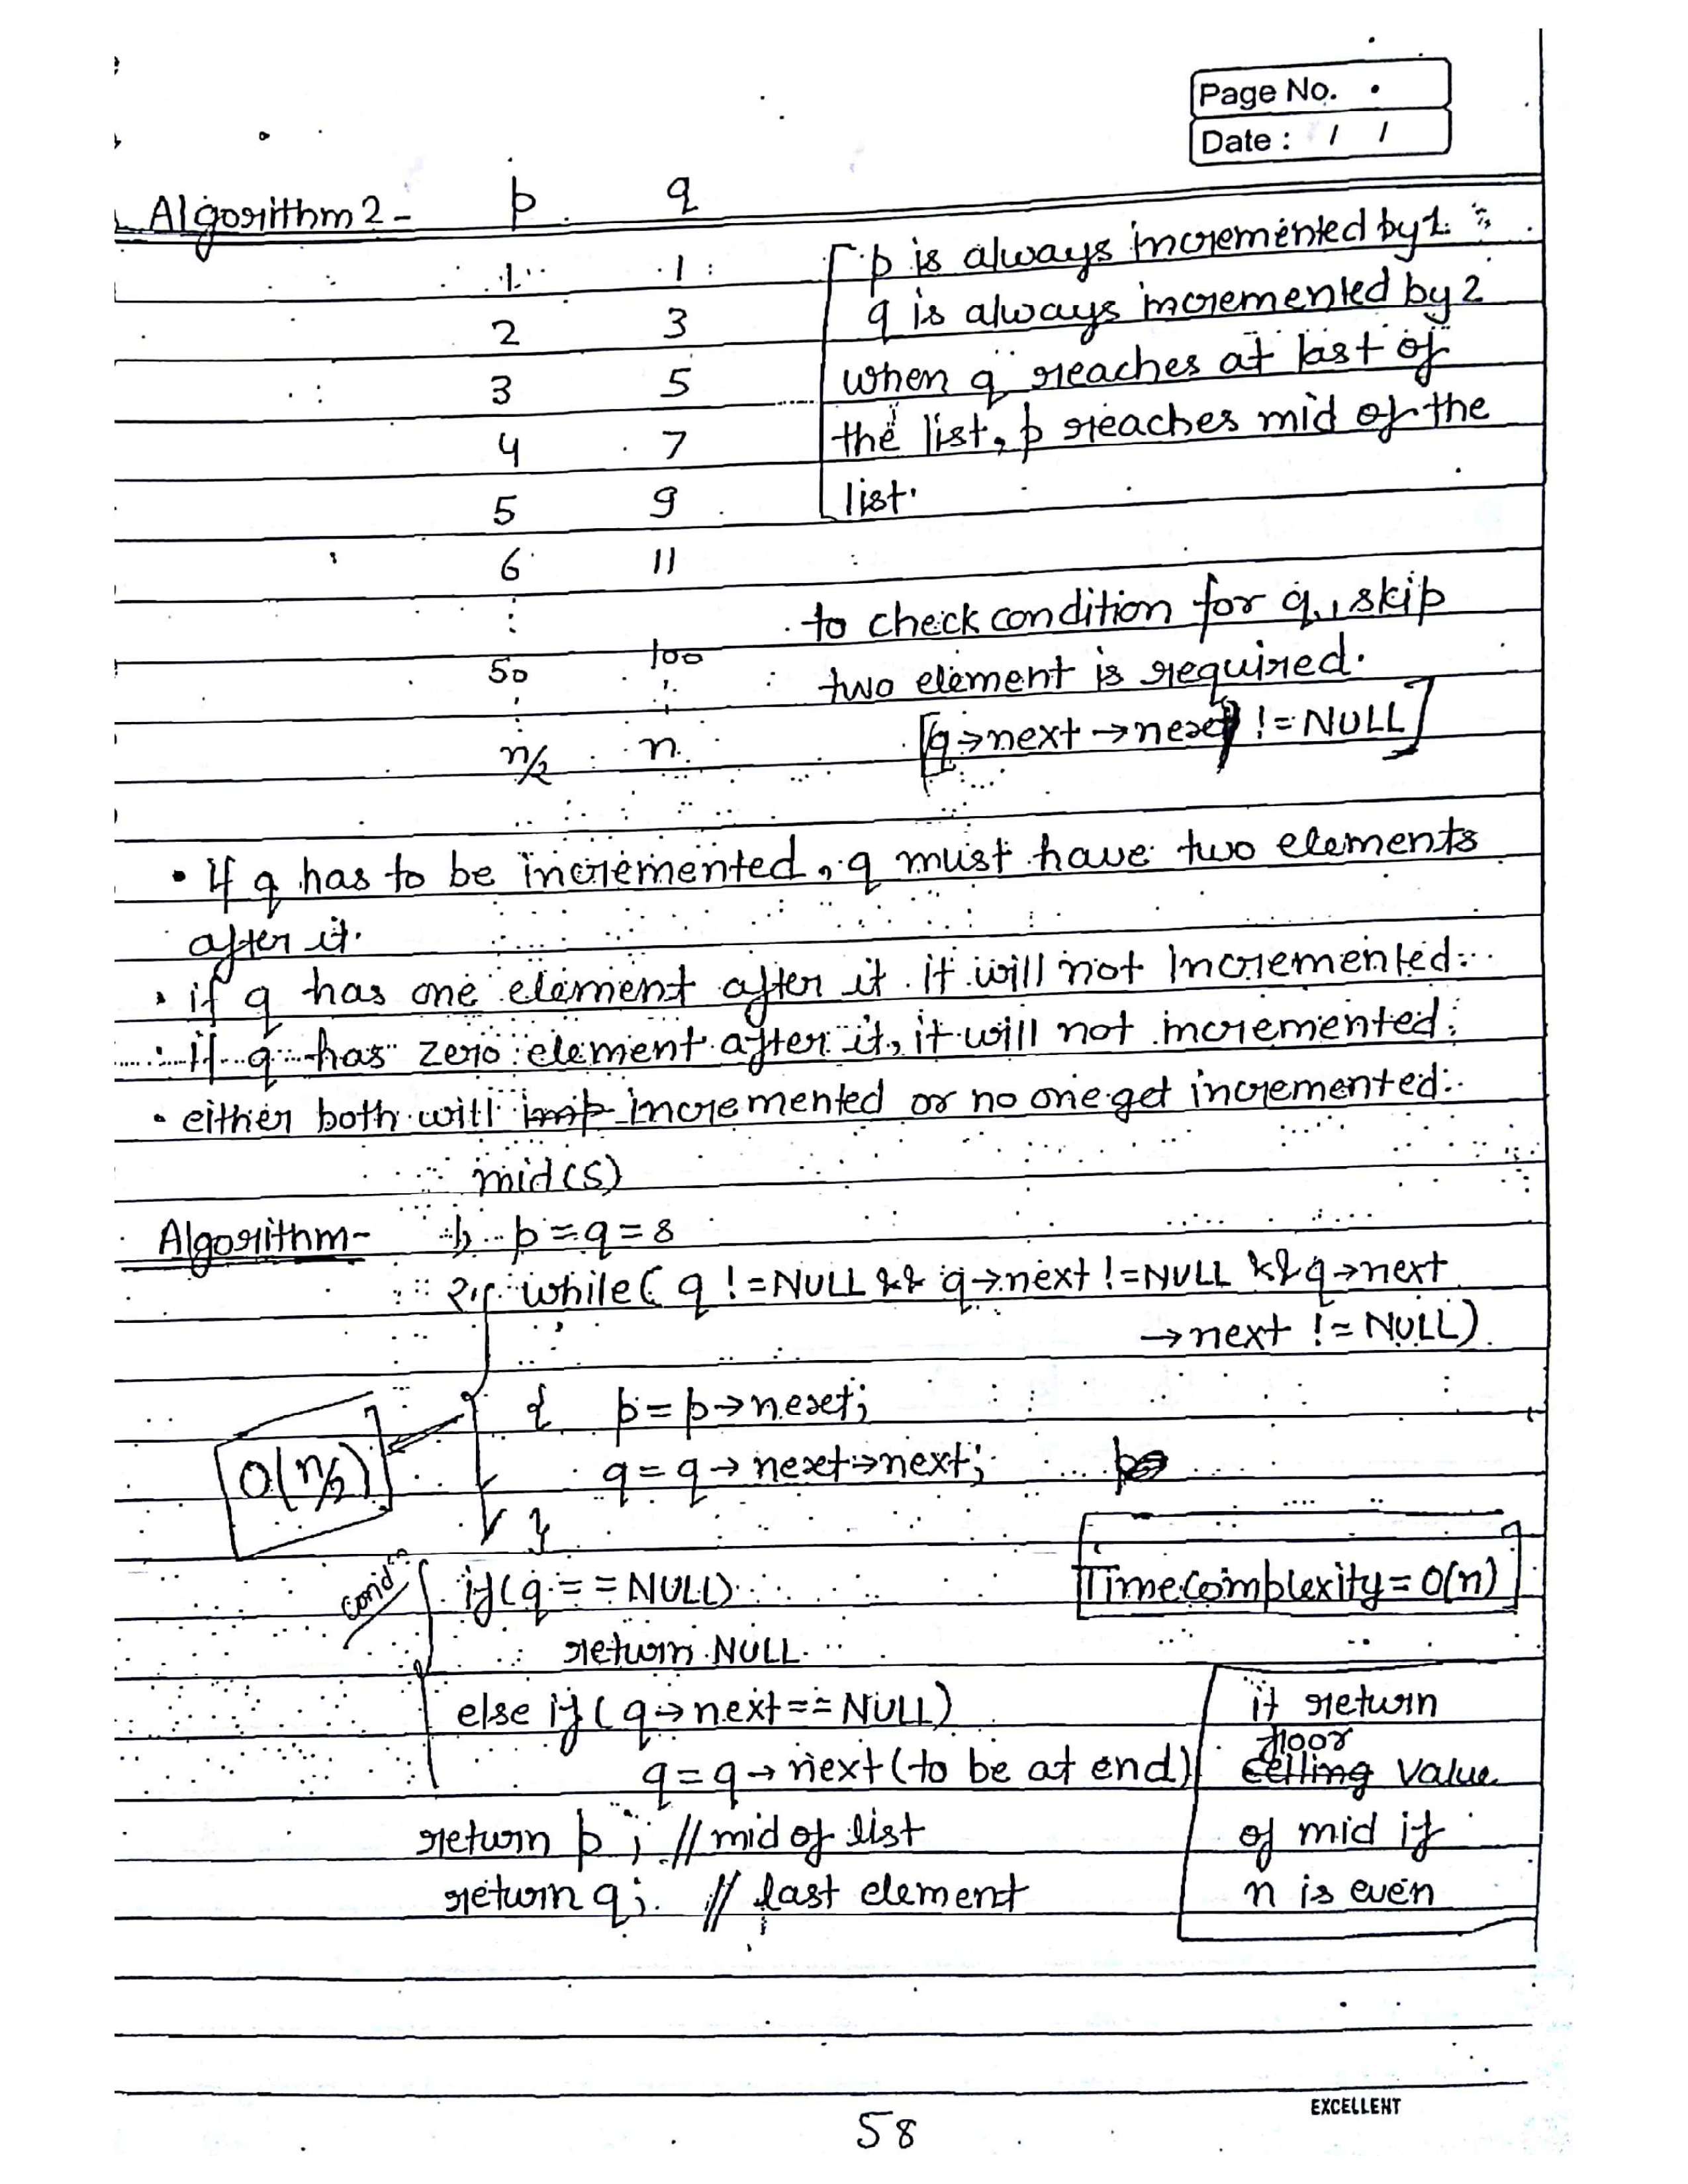 Page No.
Date : / /
Algorithm 2 - p q
1 1
p is always incremented by 1.
2 3
q is always incremented by 2
3 5
when q reaches at last of
4 7
the list, p reaches mid of the
5 9
list.
6 11
to check condition for q, skip
50 100
two element is required.
n/2 n
[q→next→next != NULL]
• If q has to be incremented, q must have two elements
after it.
• if q has one element after it it will not Incremented.
• if q has zero element after it, it will not incremented.
• either both will imp incremented or no one get incremented.
mid(s)
Algorithm- 1) p = q = s
2) while( q != NULL && q→next != NULL && q→next
→next != NULL)
{ p = p→next;
O(n/2)
q = q→next→next;
}
Time complexity = O(n)
condn
if(q == NULL)
return NULL
else if (q→next == NULL)
q = q→next (to be at end)
return p ; // mid of list
return q; // last element
it return
floor
ceiling value
of mid if
n is even
EXCELLENT
58